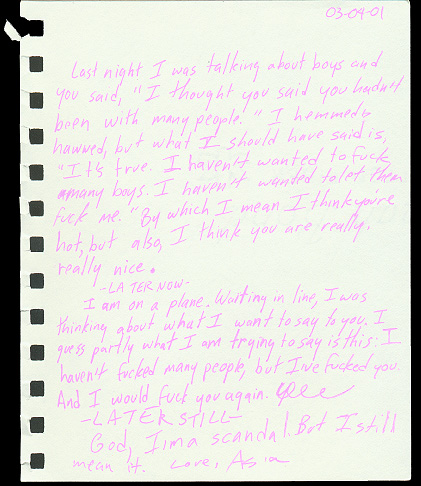 03-04-01
Last night I was talking about boys and
you said, "I thought you said you hadn't
been with many people." I hemmed &
hawed, but what I should have said is,
"It's true. I haven't wanted to fuck
many boys. I haven't wanted to let them
fuck me." By which I mean I think you're
hot, but also, I think you are really,
really nice.
-LATER NOW-
I am on a plane. Waiting in line, I was
thinking about what I want to say to you. I
guess partly what I am trying to say is this: I
haven't fucked many people, but I've fucked you.
And I would fuck you again.
-LATER STILL-
God, I'm a scandal. But I still
mean it. Love, Asia